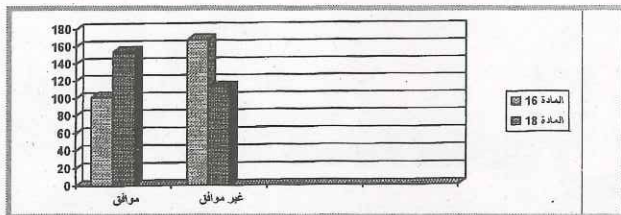 180
160
140
120
100
80
60
40
20
0
موافق
غير موافق
المادة 16
المادة 18